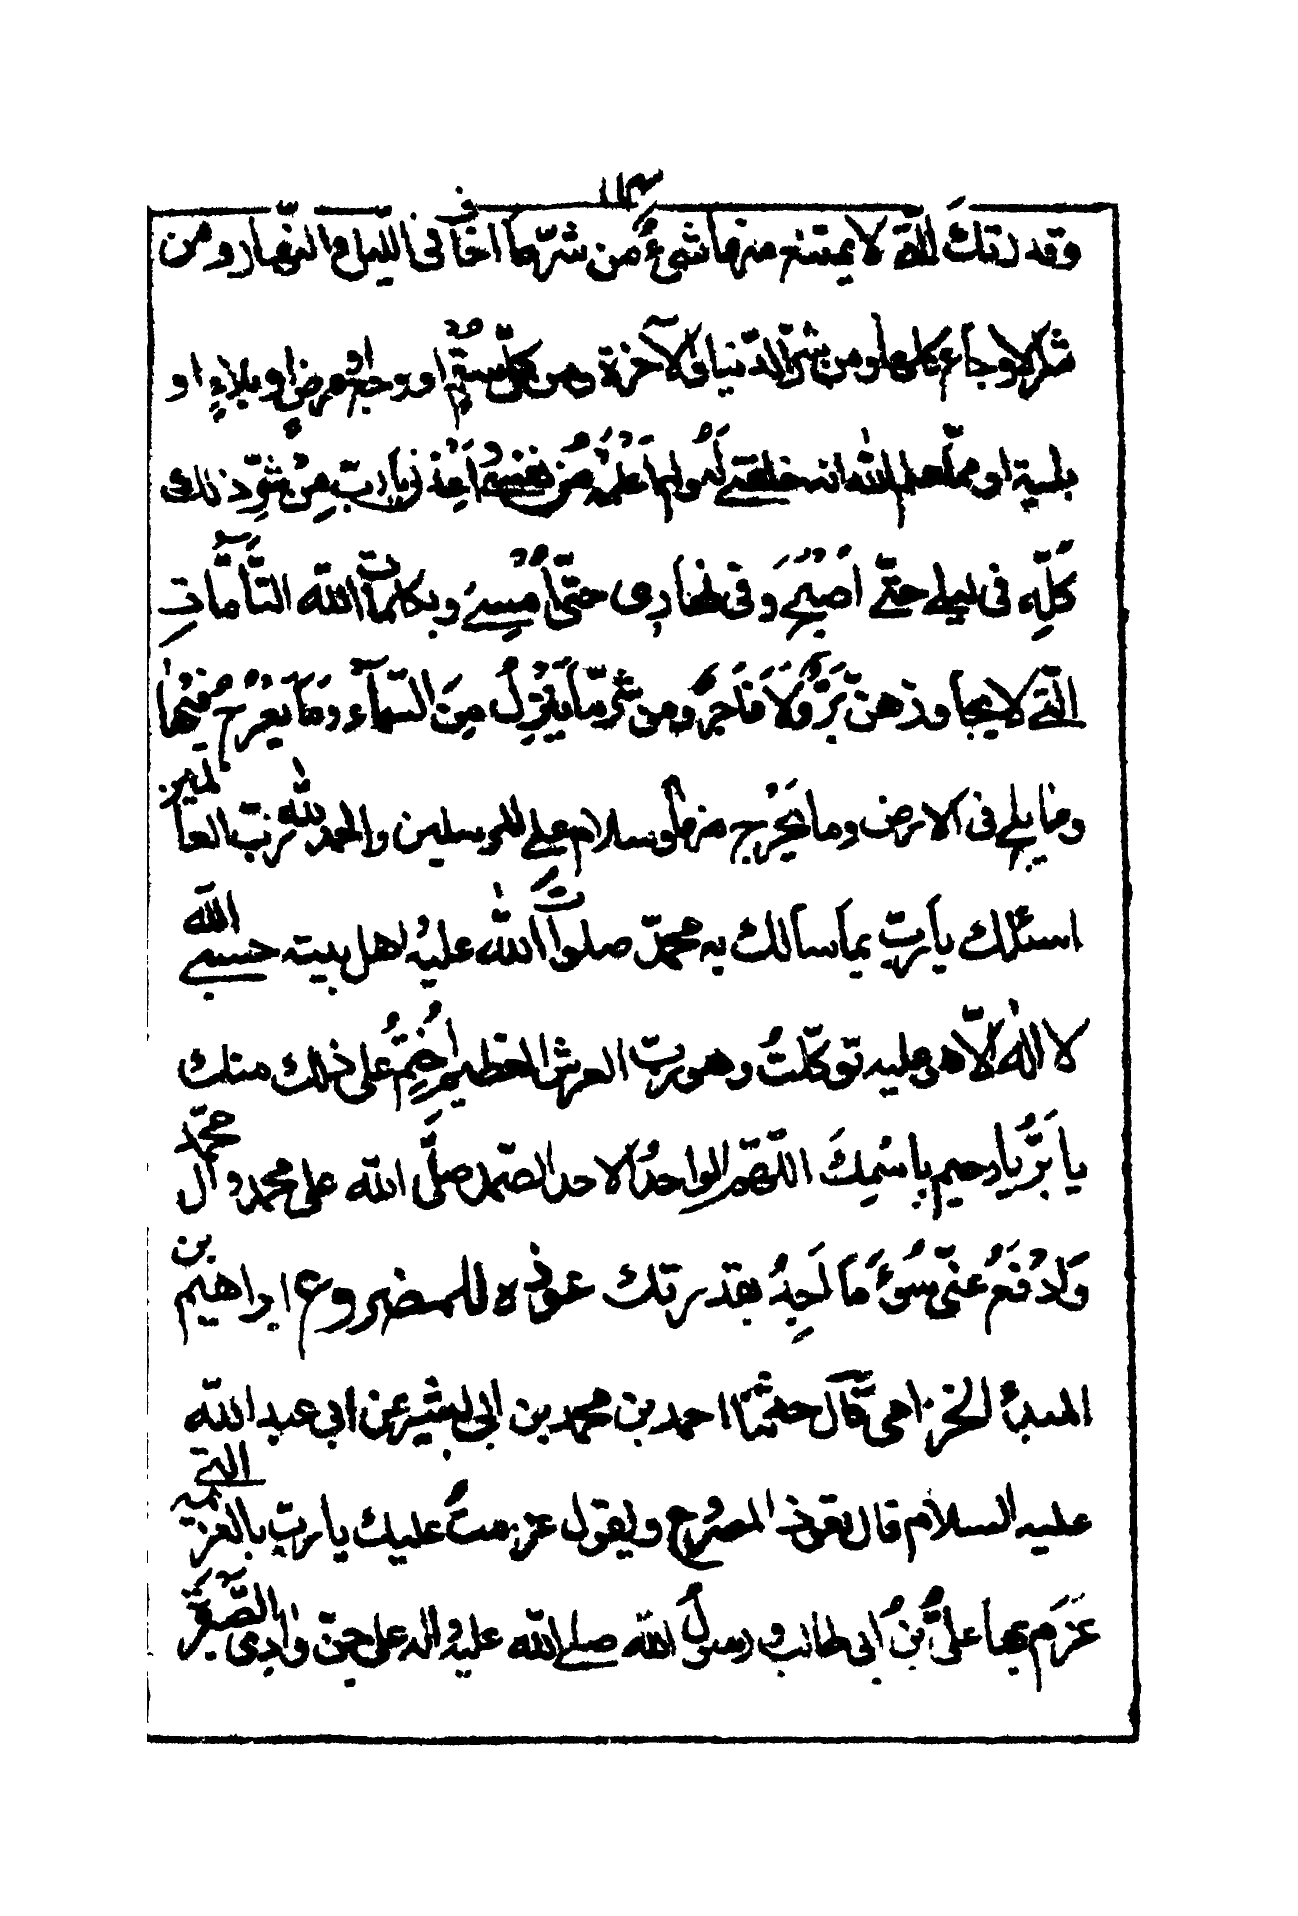 وقدرتك التى لا يمتنع منها شئ من شرّ ما اخاف فى الليل والنهار ومن
شرّ الدنيا والآخرة ومن كلّ سقم او وجع او مرض او بلاء او
بلية او ممّا علم الله انه خلقنى له ولم اعلمه من نفسى اعذنى يا ربّ من شرّ ذلك
كلّه فى ليلى حتّى اصبح وفى نهارى حتّى امسى وبكلمات الله التامّات
الّتى لا يجاوزهن برّ ولا فاجر ومن شرّ ما ينزل من السّماء وما يعرج فيها
وما يلج فى الارض وما يخرج منها وسلام على المرسلين والحمد لله ربّ العالمين
اسئلك يا ربّ بما سالك به محمدّ صلوات الله عليه واهل بيته حسبى الله
لا اله الّا هو عليه توكّلت وهو ربّ العرش العظيم اختم على ذلك منك
يا برّ يا رحيم باسمك اللّهم الواحد الاحد الصّمد صلّى الله على محمد وآل محمّد
وادفع عنّى سوء ما اجد بقدرتك عوذه للمصروع ابراهيم بن
المنذر الخزاعى قال حدثنا احمد بن محمد بن ابى البشير عن ابى عبد الله
عليه السلام قال تعوذ المصروع ويقول عزمت عليك يا ريح بالعزيمة التى
عزم بها علىّ بن ابى طالب ورسول الله صلى الله عليه واله على جنّ وادى الصّبرة